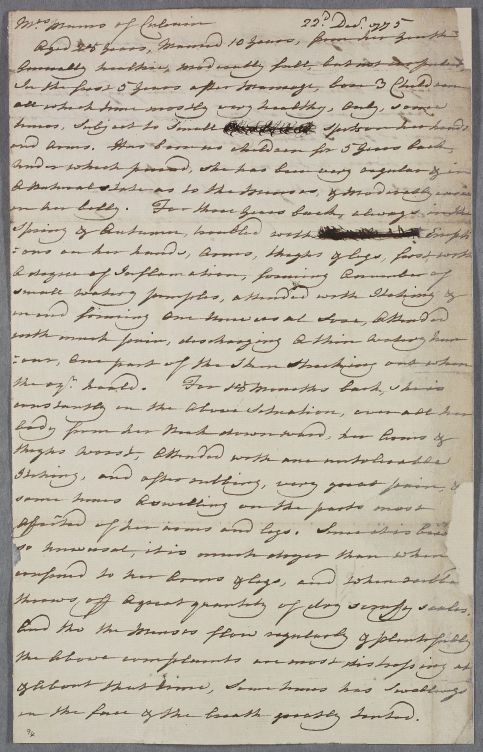 Mrs Munro of Culrain 22d. Decr. 1775
Aged 28 Years, Married 10 Years, from her Youth
Generally healthie, Moderatly full, but not corpulent
In the first 5 Years after Marriage, bore 3 Children
all which time mostly very healthy, Only, some
times, Subject to Small Spots on her hands
and Arms. Has born no children for 5 Years back,
under which period, she has been very regular & in
A Natural state as to the Menses, & Moderatly
in her belly. For three Years back, always in the
Spring & Autumn, troubled with Erupti
:ons on her hands, Arms, thighs & legs, first with
A degree of Inflamation, forming A number of
small watery pimples, attended with Itching &
in end forming One Universal Sore, Attended
with much pain, discharging A thin Watery hum
:our, One part of the Skin Stricking out when
the oyr. heald. For 18 Months back, she is
constantly in the Above Situation, over all her
body from her Neck downward, her Arms &
thighs worst, Attended with ane intolerable
Itching, and after rubbing, very great pain, &
some times A swelling on the parts most
Affected of her arms and legs. Since it is been
so universal, it is much dryer than when
confined to her Arms & legs, and when
throws off A great quantity of dry scruffy scales.
And tho the Menses flow regularly & plentifully
the Above complaints are most distressing at
& About that time, Sometimes has Swellings
in the face & the breath greatly tainted.